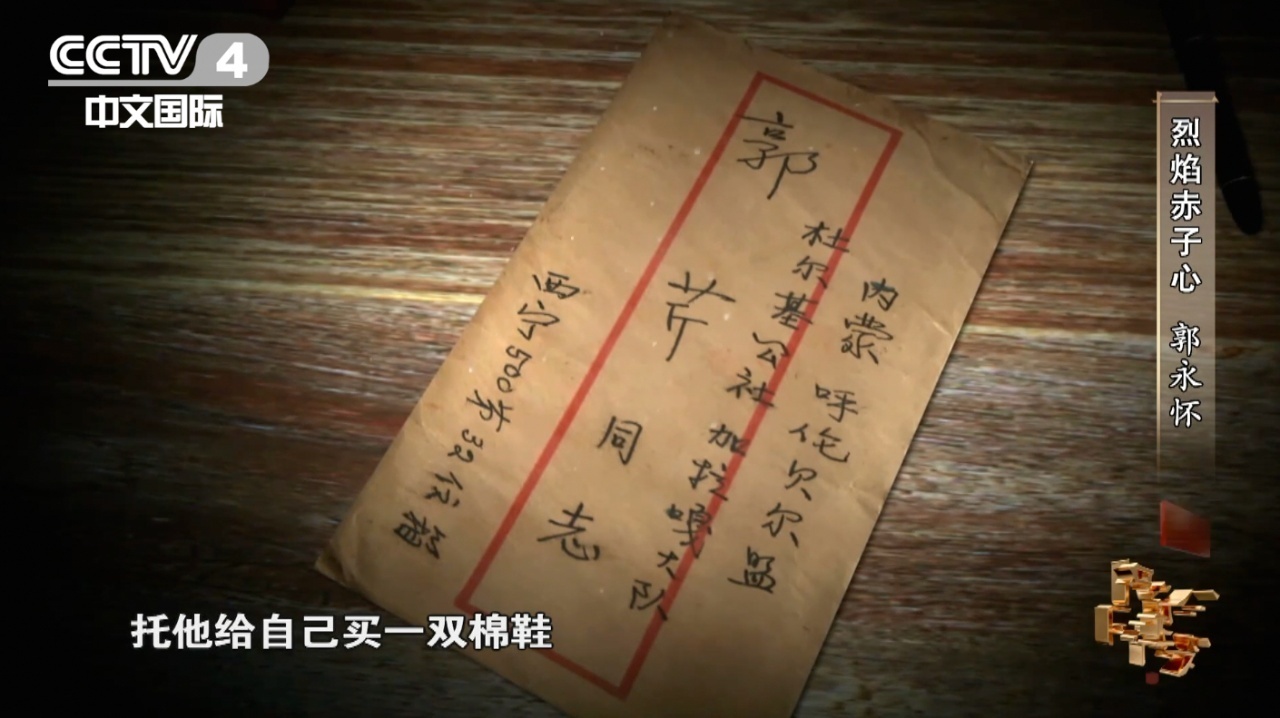 CCTV 4
中文国际
烈焰赤子心 郭永怀
内蒙 呼伦贝尔盟
杜尔基公社 加拉嘎大队
郭芹同志
西宁500 32信箱
托他给自己买一双棉鞋